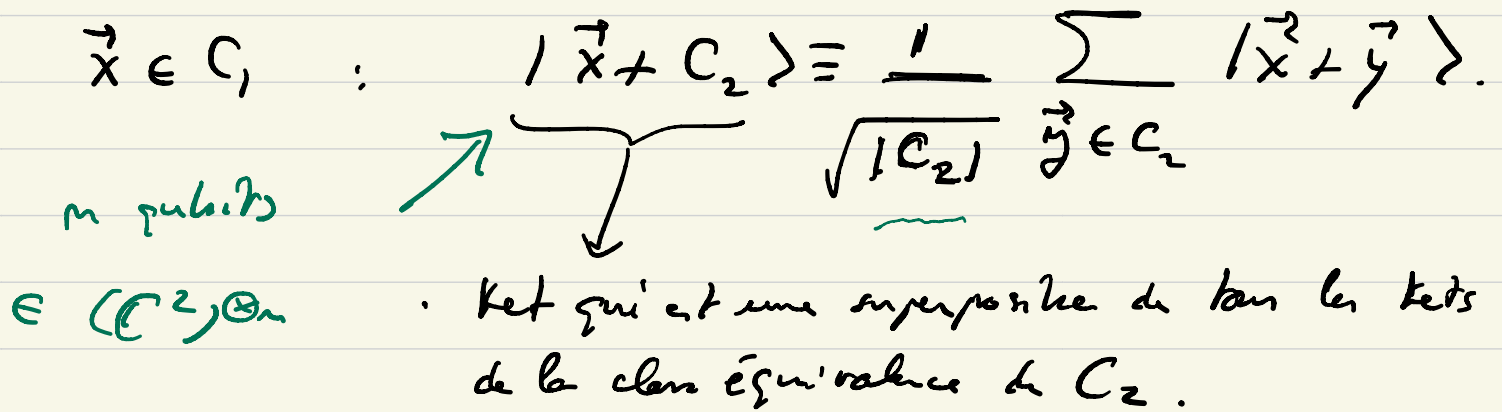 $\vec{x} \in C_1$ : $|\vec{x} + C_2\rangle \equiv \frac{1}{\sqrt{|C_2|}} \sum_{\vec{y} \in C_2} |\vec{x} + \vec{y}\rangle.$
n qubits
$\in (\mathbb{C}^2)^{\otimes n}$ · Ket qui est une superposition de tous les kets
de la classe équivalence de $C_2$.